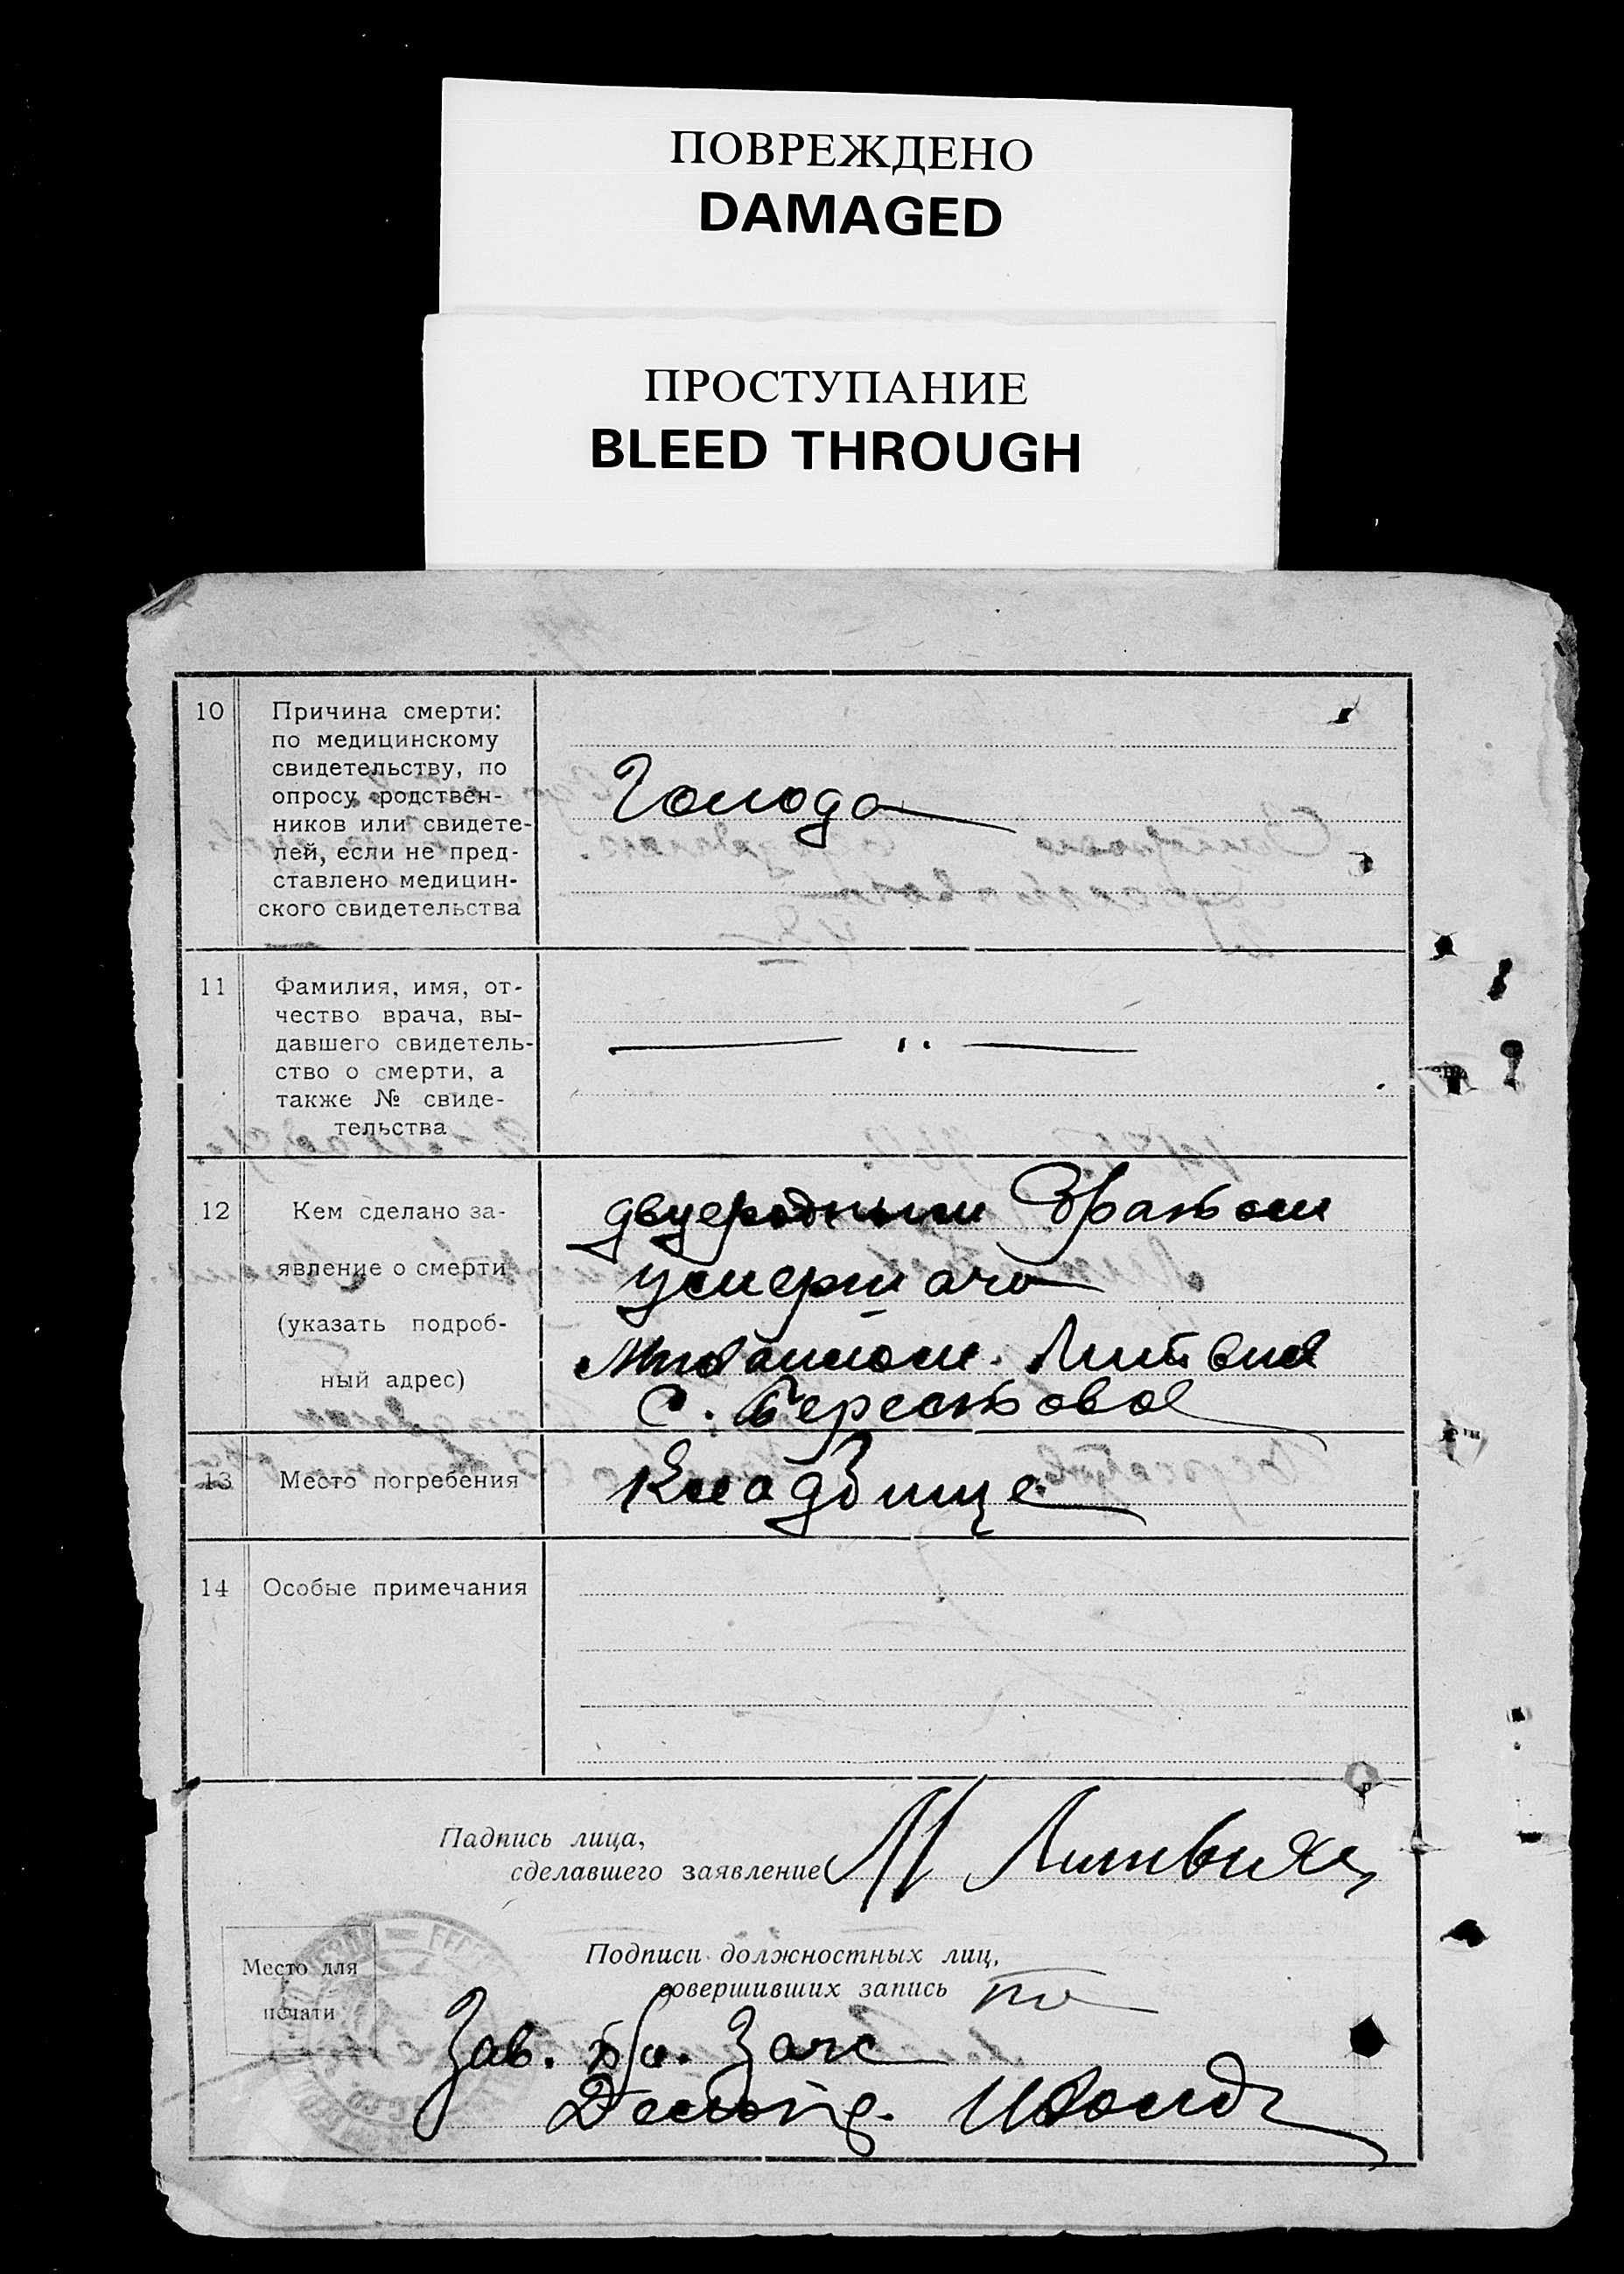 ПОВРЕЖДЕНО
DAMAGED
ПРОСТУПАНИЕ
BLEED THROUGH
10
Причина смерти:
по медицинскому
свидетельству, по
опросу родствен-
ников или свидете-
лей, если не пред-
ставлено медицин-
ского свидетельства
Голода
11
Фамилия, имя, от-
чество врача, вы-
давшего свидетель-
ство о смерти, а
также № свиде-
тельства
— „ —
12
Кем сделано за-
явление о смерти
(указать подроб-
ный адрес)
двуеродным братом
умершаго
Михаилом Литвин
С. Берестова
13
Место погребения
Кладбище
14
Особые примечания
Падпись лица,
сделавшего заявление
М Литвин
Место для
печати
Подписи должностных лиц,
совершивших запись
Зав. б/о. Загс